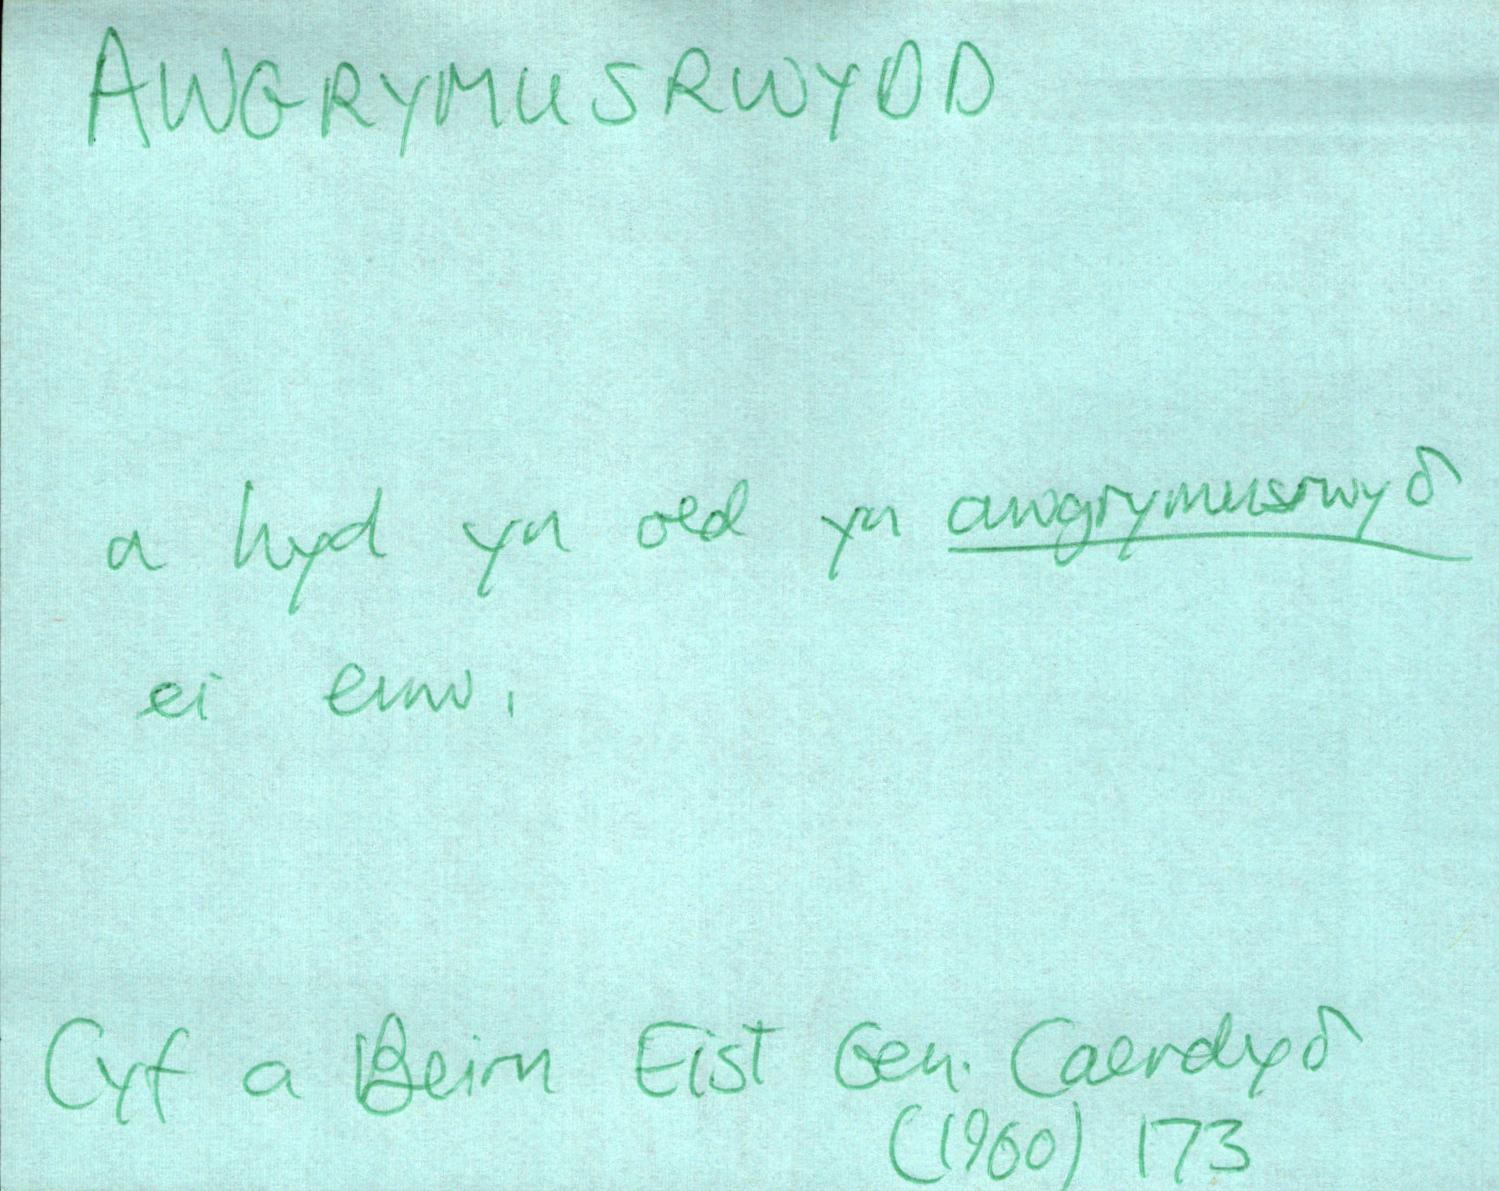 AWGRYMUSRWYDD
a hyd yn oed yn awgrymusrwyδ
ei enw.
Cyf a Beirn Eist Gen. Caerdyδ
(1960) 173